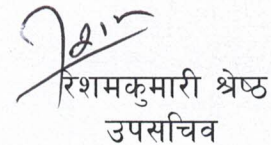 रेशमकुमारी श्रेष्ठ
उपसचिव